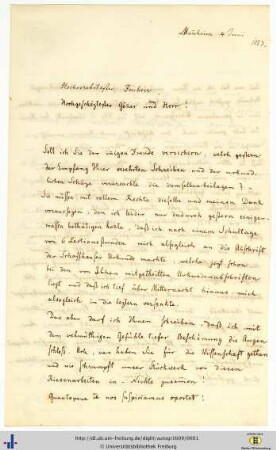 Mannheim 4 Juni
Hochverehrtester Freiherr
Hochgeschätztester Gönner und Herr!
Soll ich Sie der innigen Freude versichern, welche gestern
der Empfang Ihrer verehrten Schreiben und der
lichen Schätze verursachte die demselben beilagen?
Sie müssen mit vollem Rechte dieselbe und meinen Dank
voraussetzen, den ich leider nur dadurch gestern
bethätigen konnte, daß ich nach einem Schultage
von 6 Lectionsstunden mich alsogleich an die Abschrift
der Schaffhauser Urkunde machte, welche jezt schon
bei den von Ihnen mitgetheilten Urkundenabschriften
liegt und daß ich tief über Mitternacht hinaus mich
alsogleich in die leztern versenkte.
Das aber darf ich Ihnen schreiben, daß ich mit
dem wehmüthigen Gefühle tiefer Beschämung die Augen
schloß. Was haben Sie für die Wissenschaft gethan
und wie schrumpft unser Stückwerk vor diesen
Riesenarbeiten in
oportet!
http://dl.ub.uni-freiburg.de/diglit/autogr0609/0001
© Universitätsbibliothek Freiburg